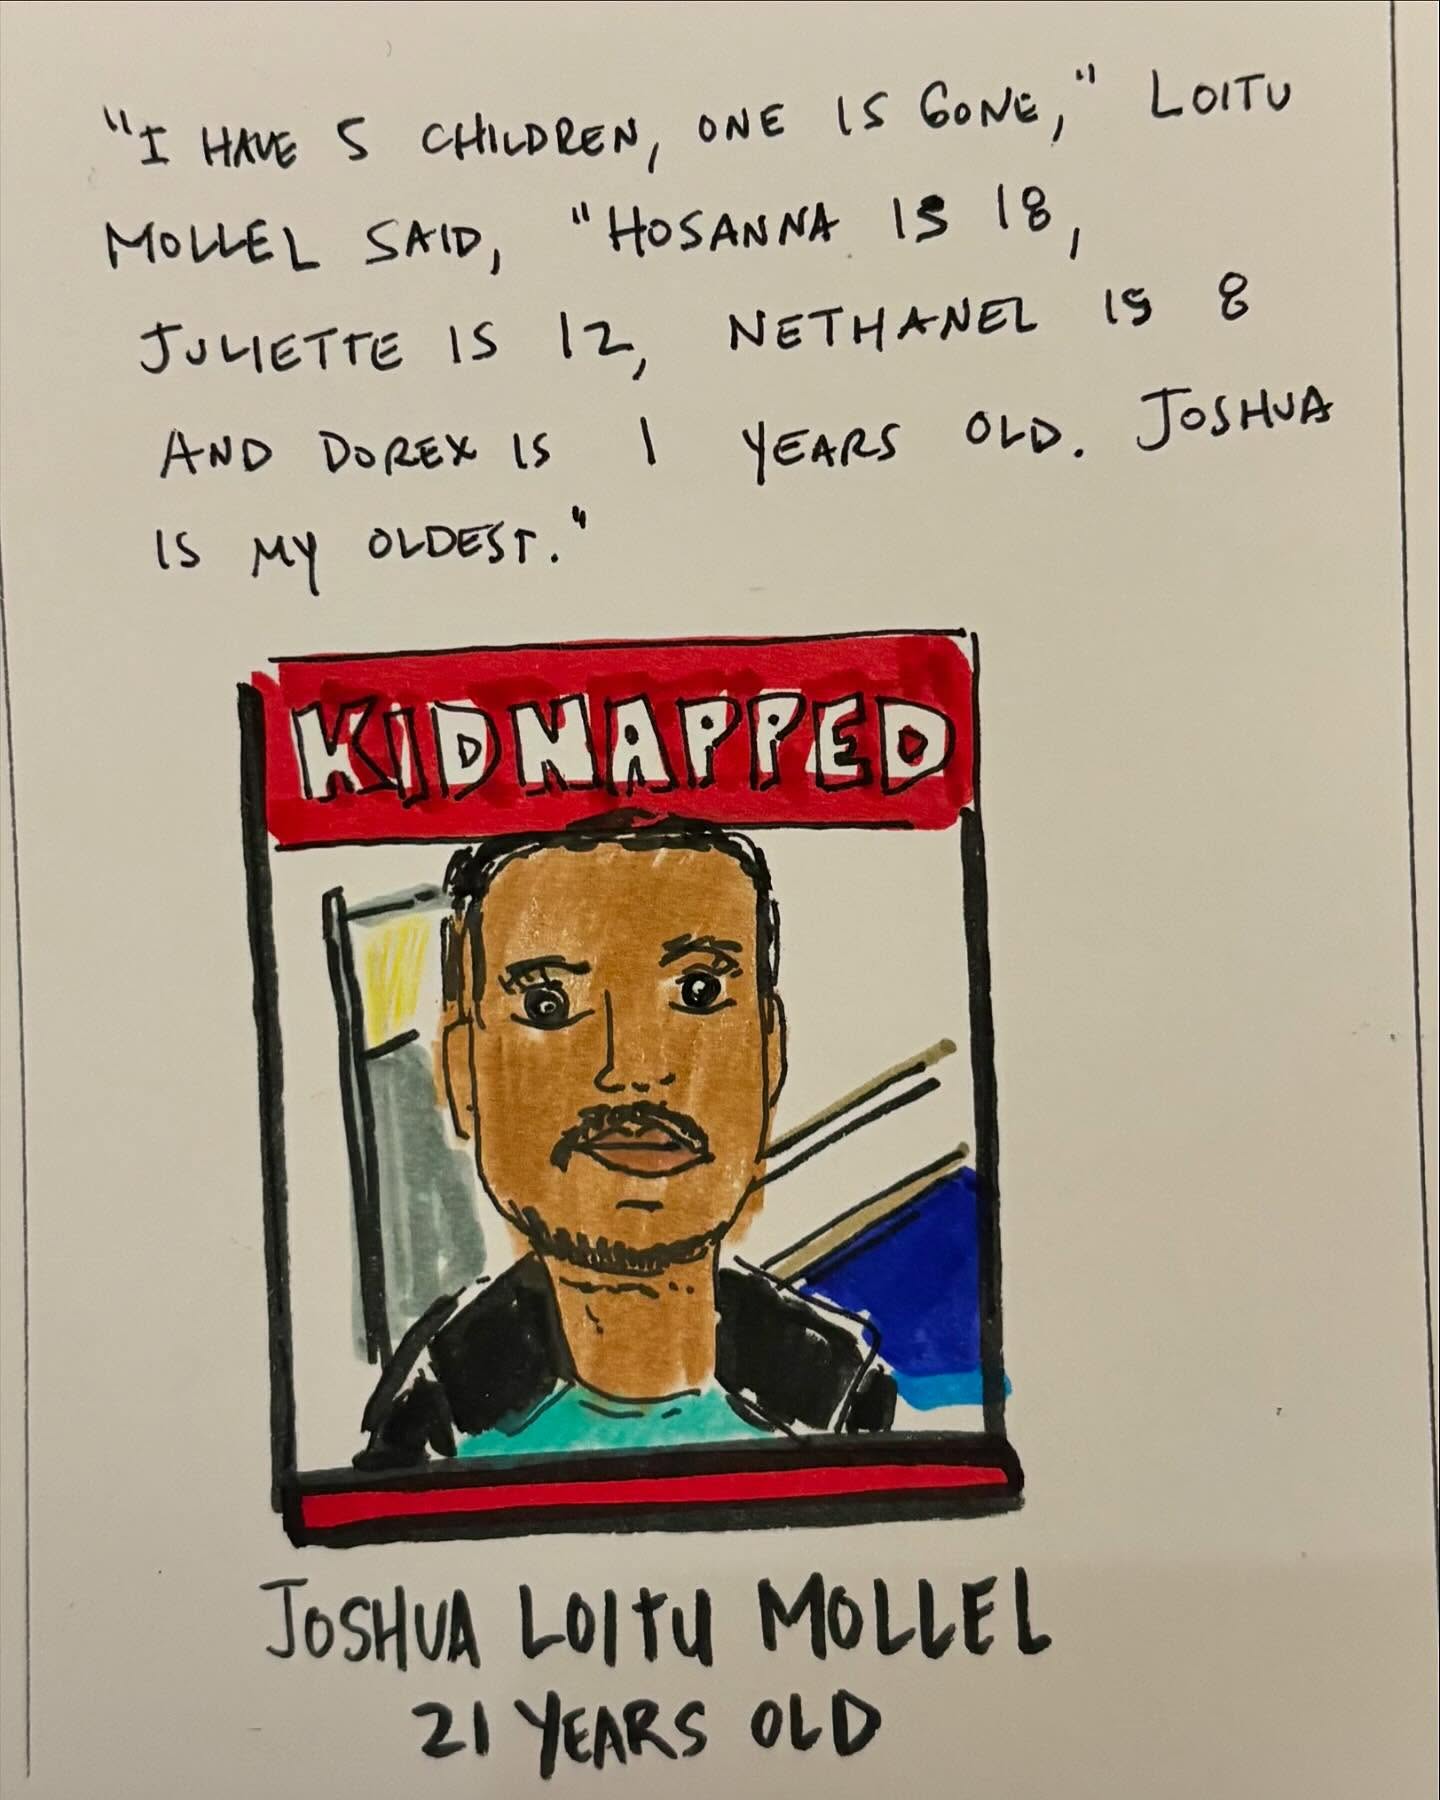 "I HAVE 5 CHILDREN, ONE IS GONE," LOITU
MOLLEL SAID, "HOSANNA IS 18,
JULIETTE IS 12, NETHANEL IS 8
AND DOREX IS 1 YEARS OLD. JOSHUA
IS MY OLDEST."
KIDNAPPED
JOSHUA LOITU MOLLEL
21 YEARS OLD